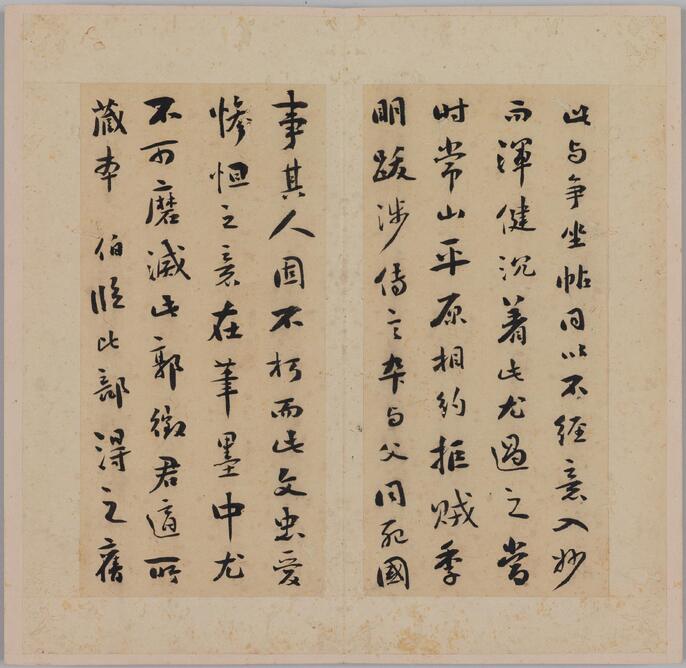 此与争坐帖同以不经意入妙
而浑健沉着此尤過之當
时常山平原相約拒贼季
明跋涉傳言卒与父同死國
事其人固不朽而此文忠愛
惨怛之意在筆墨中尤
不可磨滅此郭徵君適所
蔵本 伯临比部得之舊